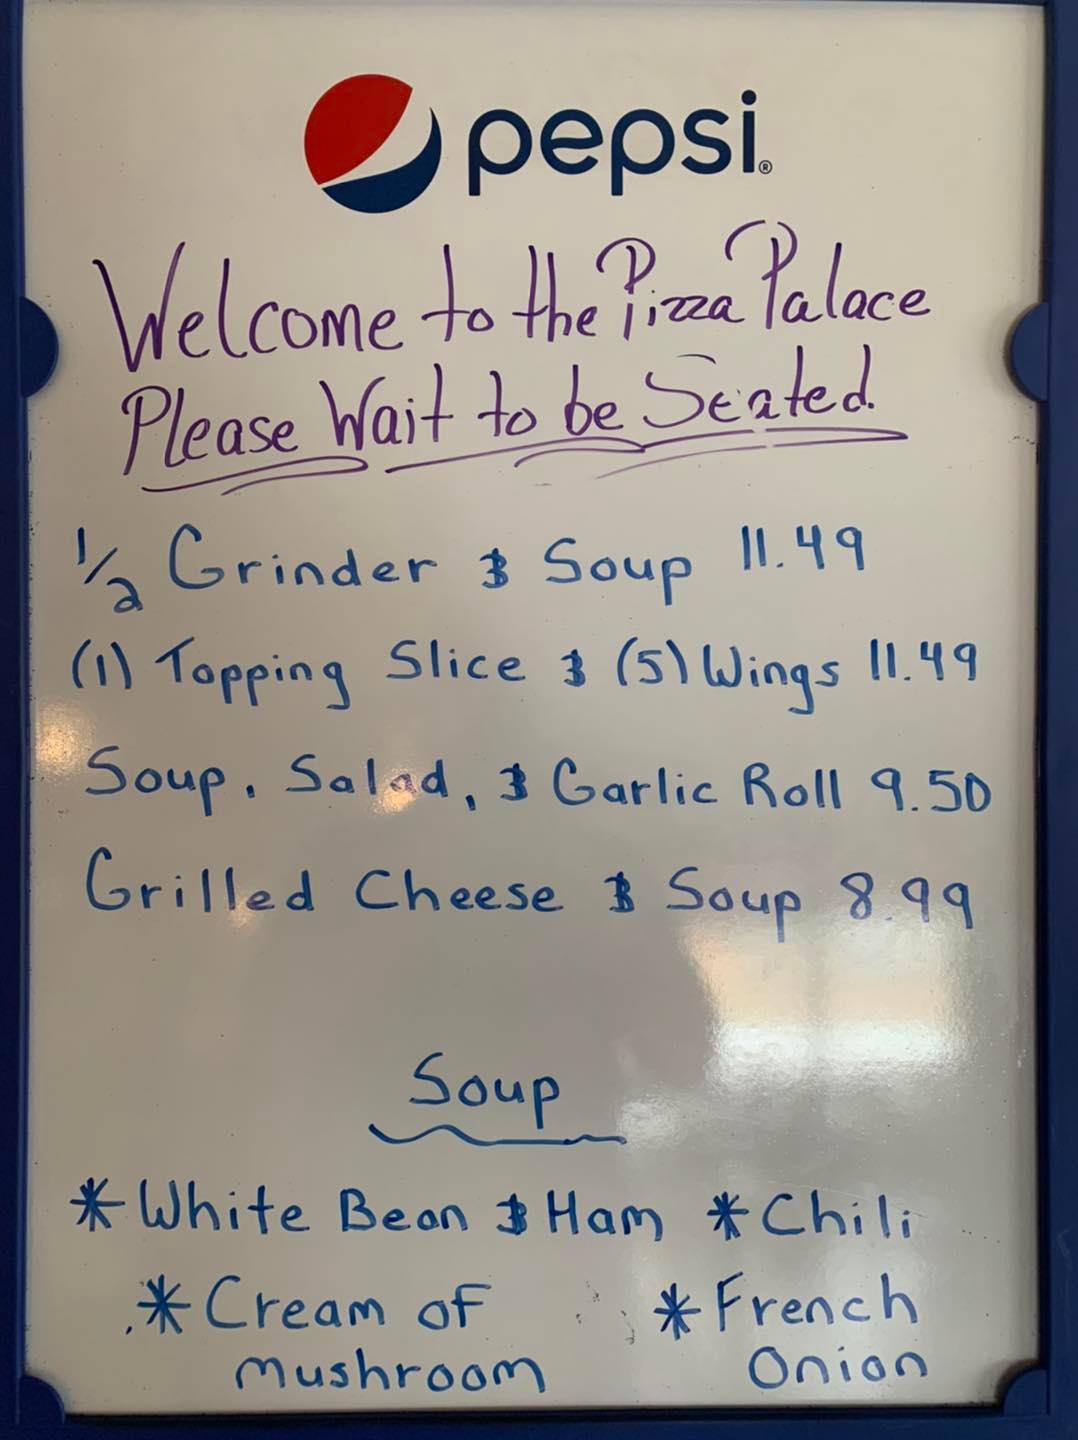 pepsi®
Welcome to the Pizza Palace
Please Wait to be Seated.
1/2 Grinder & Soup 11.49
(1) Topping Slice & (5) Wings 11.49
Soup, Salad, & Garlic Roll 9.50
Grilled Cheese & Soup 8.99
Soup
* White Bean & Ham * Chili
* Cream of * French
mushroom Onion